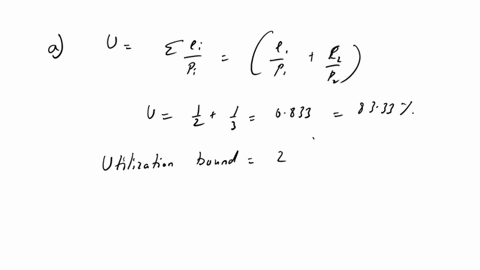 a) U = Σ ei/Pi = (ei/Pi + e2/P2)
U = 1/2 + 1/3 = 0.833 = 83.33 %.
Utilization bound = 2